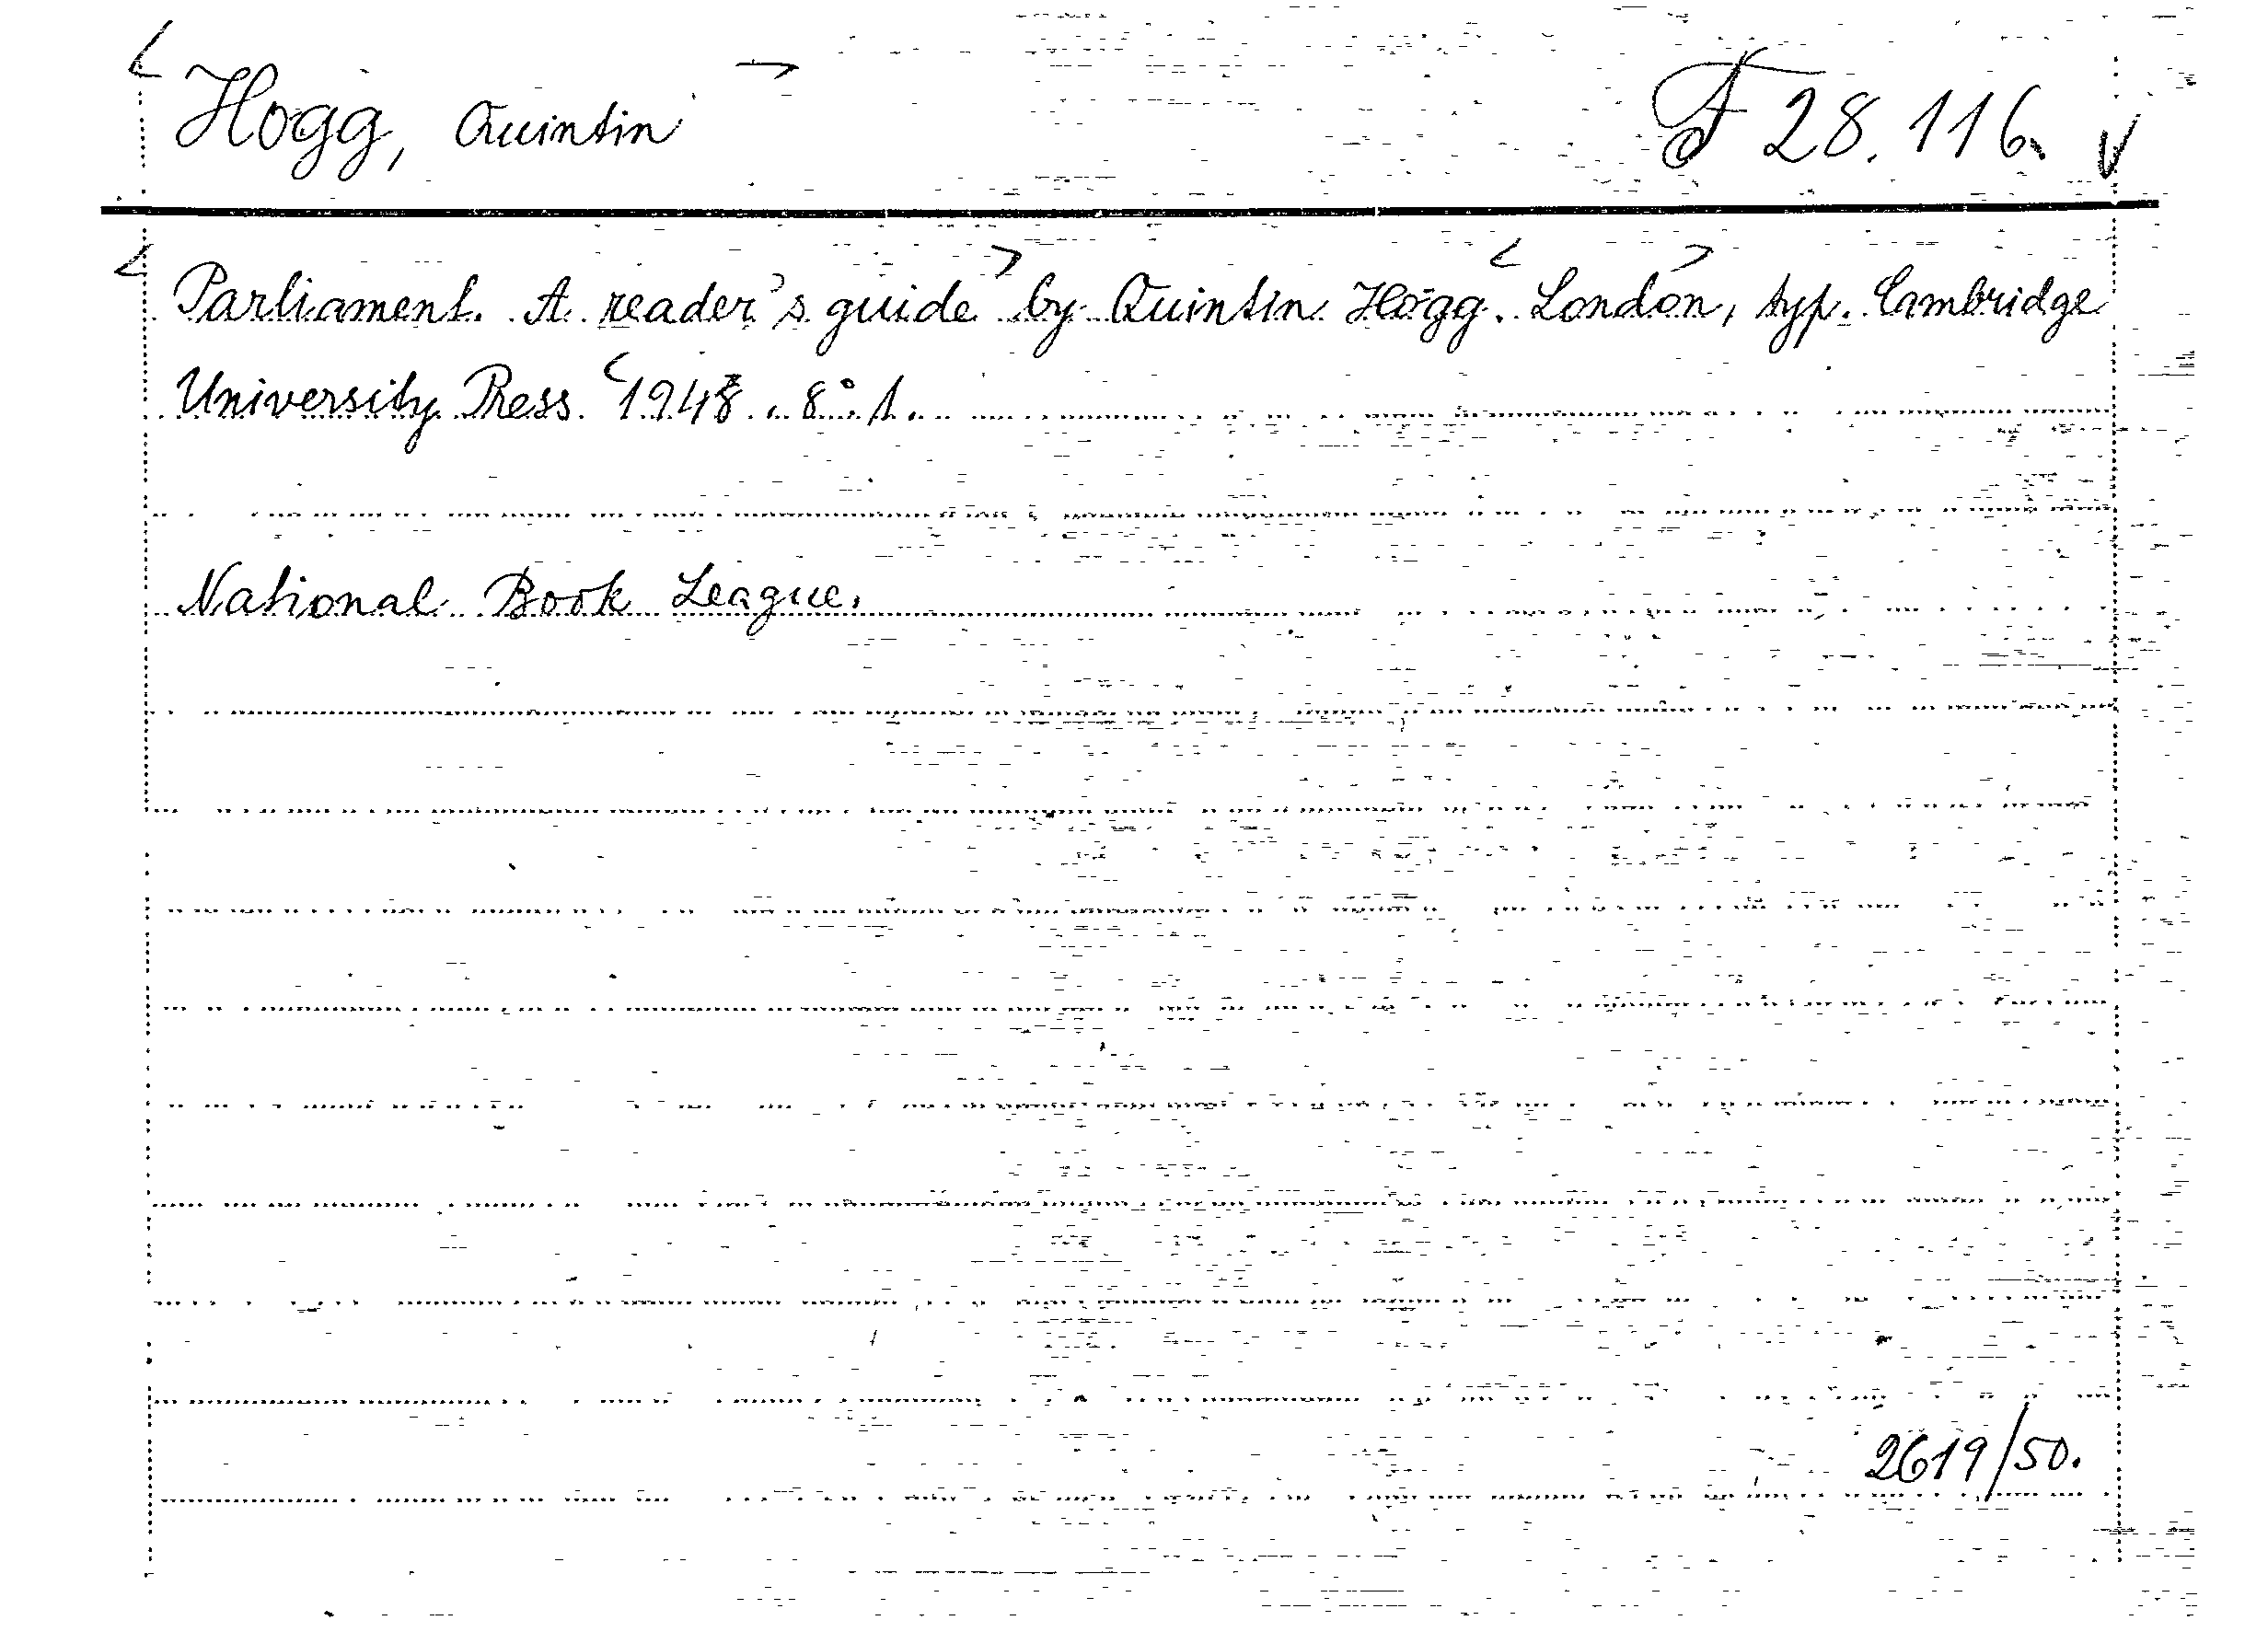 Hogg, Quintin F 28.116.
Parliament. A reader's guide by Quintin Hogg. London, typ. Cambridge
University Press 1948. 8° 1.
National Book League.
2619/50.